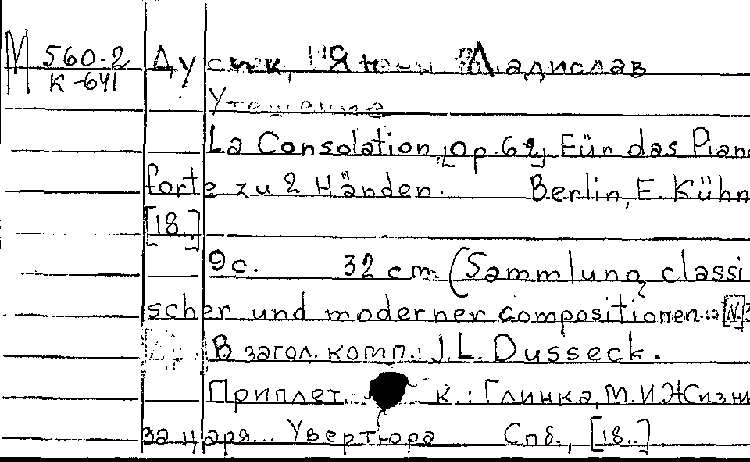 М 560-2 Дусик, Ян Ладислав
К-641
Утешение
La Consolation, [Op. 62] Für das Piano
forte zu 2 Händen. Berlin, E. Kühn
[18..]
9 с. 32 cm (Sammlung classi
scher und moderner Compositionen
В загол. комп.: J. L. Dusseck.
Приплет. к: Глинка, М. И. Жизнь
за царя... Увертюра Спб., [18..]